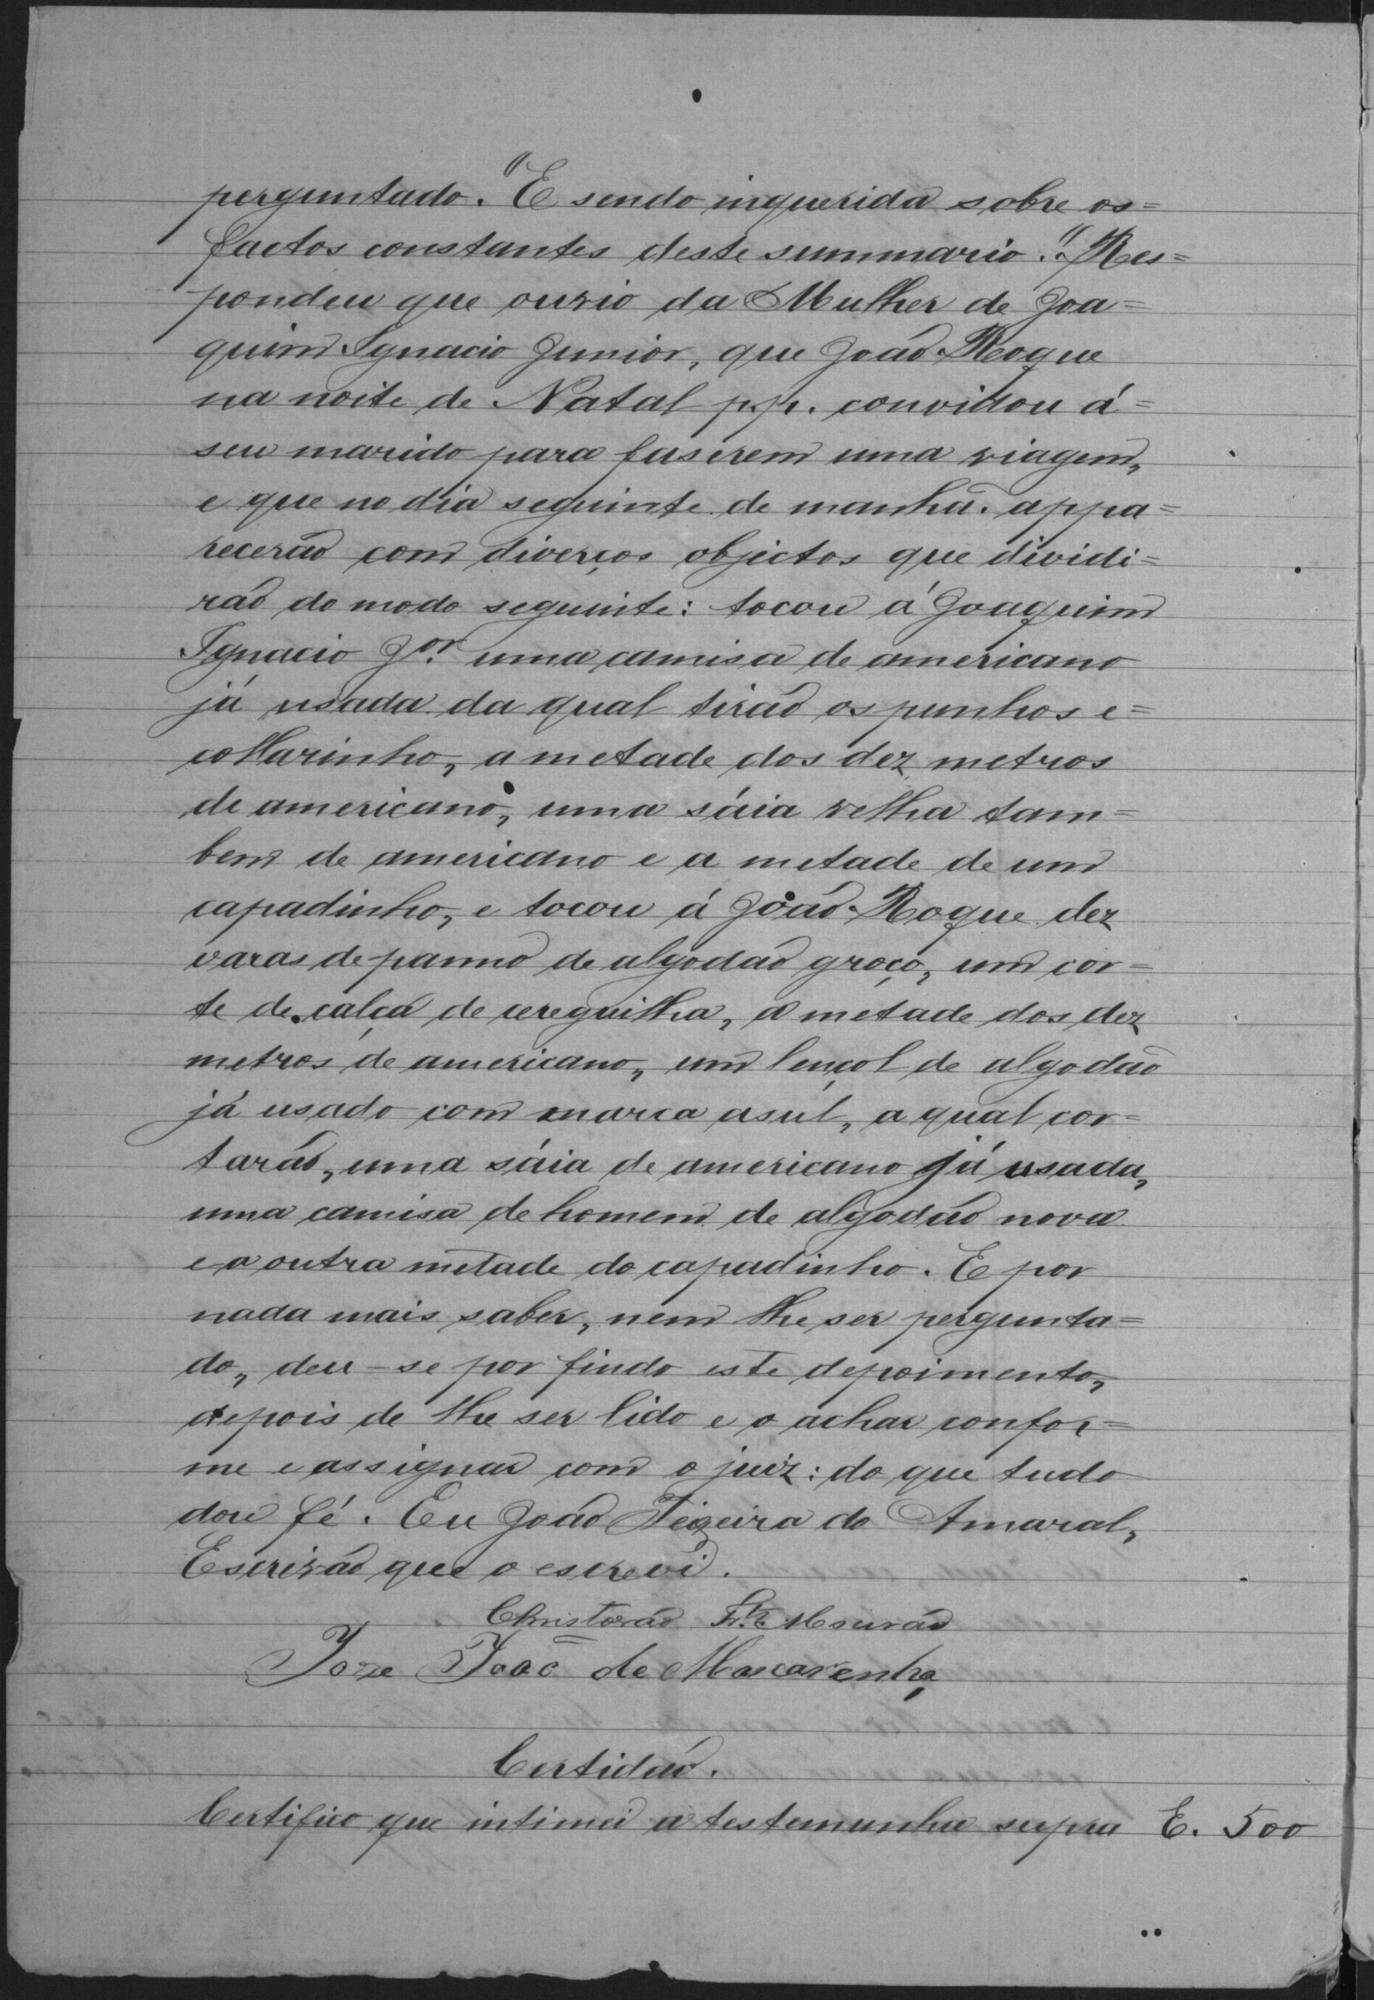 perguntado. "E sendo inquerida sobre os=
factos constantes deste summario." Res=
pondeu que ouvio da Mulher de Joa=
quim Ignacio Junior, que João Roque
na noite de Natal p.p. convidou á=
seu marido para faserem uma viagem,
e que no dia seguinte de manhã. appa=
recerão com diverços objectos que dividi=
rão do modo seguinte: tocou á Joaquim
Ignacio Jor. uma camisa de americano
já usada da qual tirão os punhos e=
collarinho, a metade dos dez metros
de americano, uma sáia velha tam=
bem de americano e a metade de um
capadinho, e tocou á João Roque dez
varas de panno de algodão groço, um cor=
te de calça de cereguilha, a metade dos dez
metros de americano, um lençol de algodão
já usado com marca asul, a qual cor=
tarão, uma sáia de americano já usada,
uma camisa de homem de algodão nova
e a outra metade do capadinho. E por
nada mais saber, nem lhe ser pergunta=
do, deu-se por findo este depoimento,
depois de lhe ser lido e o achar confor=
me e assignar com o juiz: do que tudo
dou fé. Eu João Teixeira do Amaral,
Escrivão que o escrevi.
Christovão Mourão
Joze João de Mascarenha
Certidão.
Certifico que intimei a testemunha supra E. 500